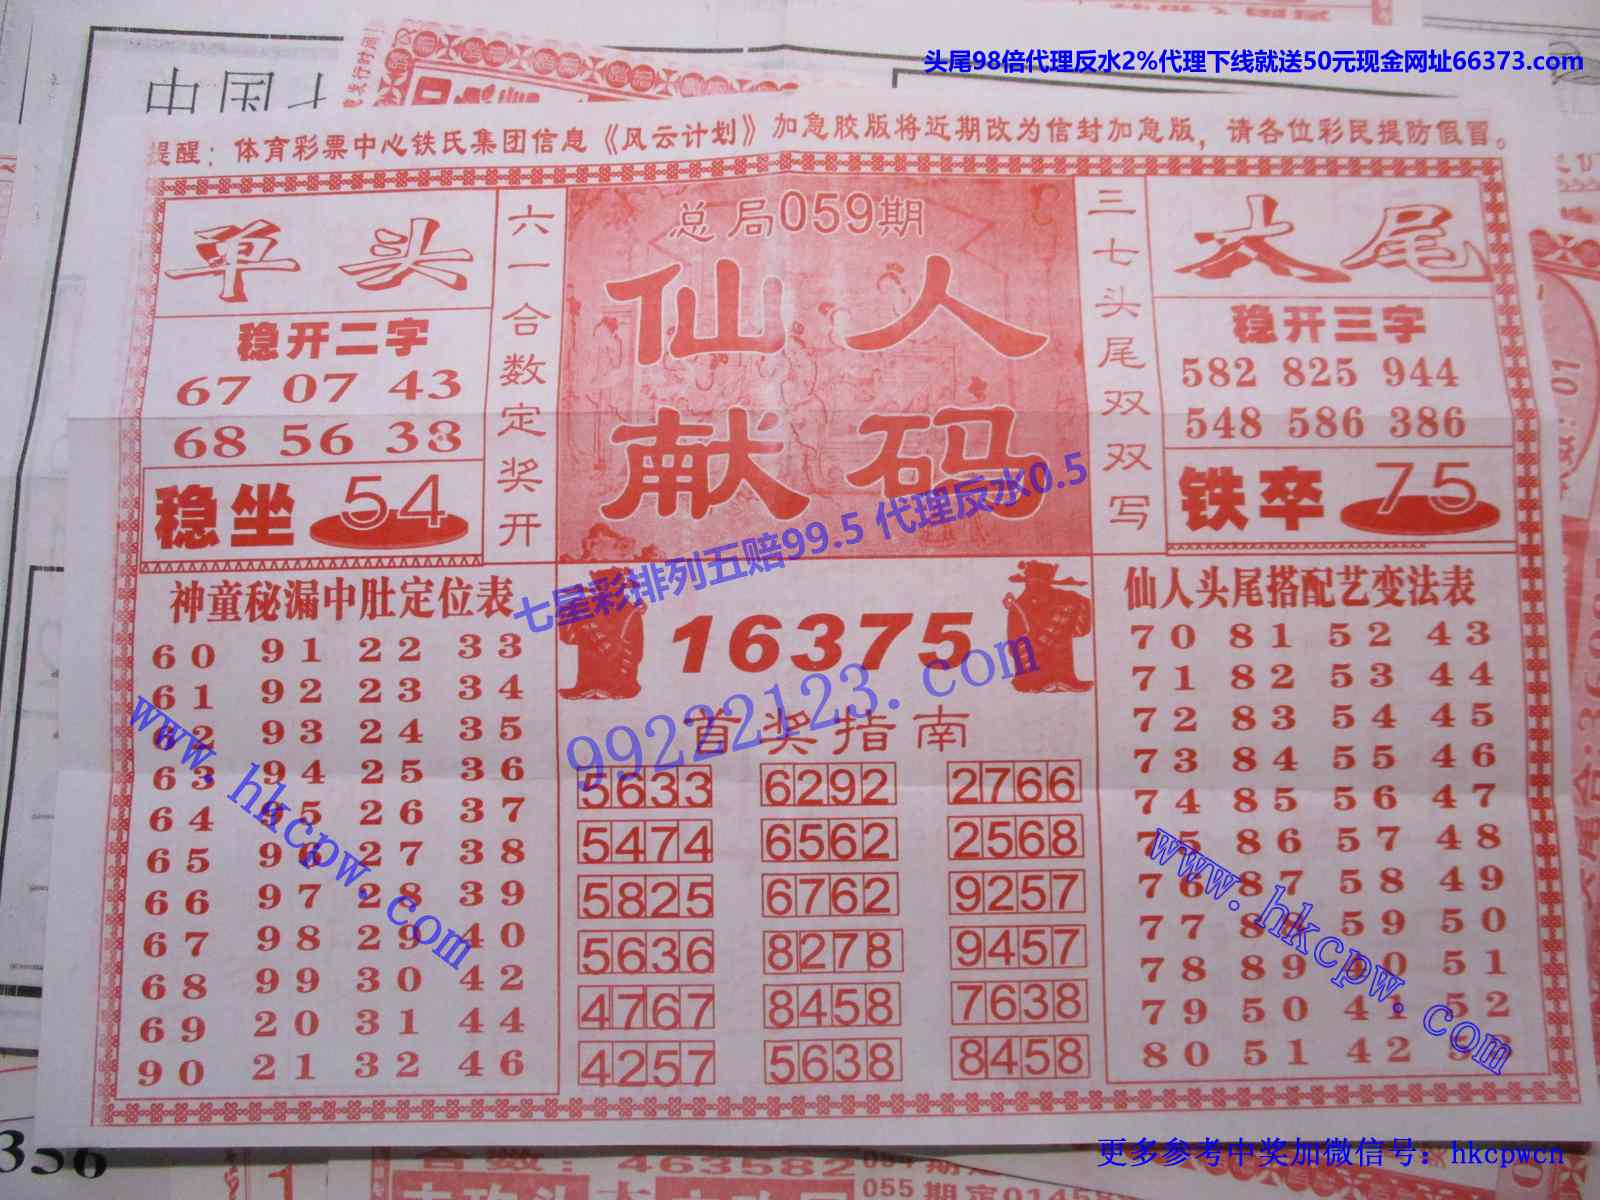 头尾98倍代理反水2%代理下线就送50元现金网址66373.com
提醒：体育彩票中心铁氏集团信息《风云计划》加急胶版将近期改为信封加急版，请各位彩民提防假冒。
单头
稳开二字
67 07 43
68 56 33
稳坐 54
六一合数定奖开
总局059期
仙人
献码
三七头尾双双写
大尾
稳开三字
582 825 944
548 586 386
铁卒 75
七星彩排列五赔99.5 代理反水0.5
99222123.com
神童秘漏中肚定位表
60 91 22 33
61 92 23 34
62 93 24 35
63 94 25 36
64 95 26 37
65 96 27 38
66 97 28 39
67 98 29 40
68 99 30 42
69 20 31 44
90 21 32 46
www.hkcpw.com
16375
首奖指南
5633 6292 2766
5474 6562 2568
5825 6762 9257
5636 8278 9457
4767 8458 7638
4257 5638 8458
仙人头尾搭配艺变法表
70 81 52 43
71 82 53 44
72 83 54 45
73 84 55 46
74 85 56 47
75 86 57 48
76 87 58 49
77 59 50
78 89 40 51
79 50 41 52
80 51 42
www.hkcpw.com
更多参考中奖加微信号：hkcpwcn
合数：463582
055期定014589